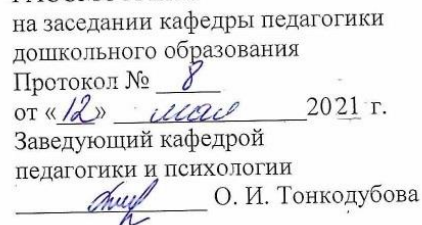 на заседании кафедры педагогики
дошкольного образования
Протокол № 8
от «12» мая 2021 г.
Заведующий кафедрой
педагогики и психологии
О. И. Тонкодубова